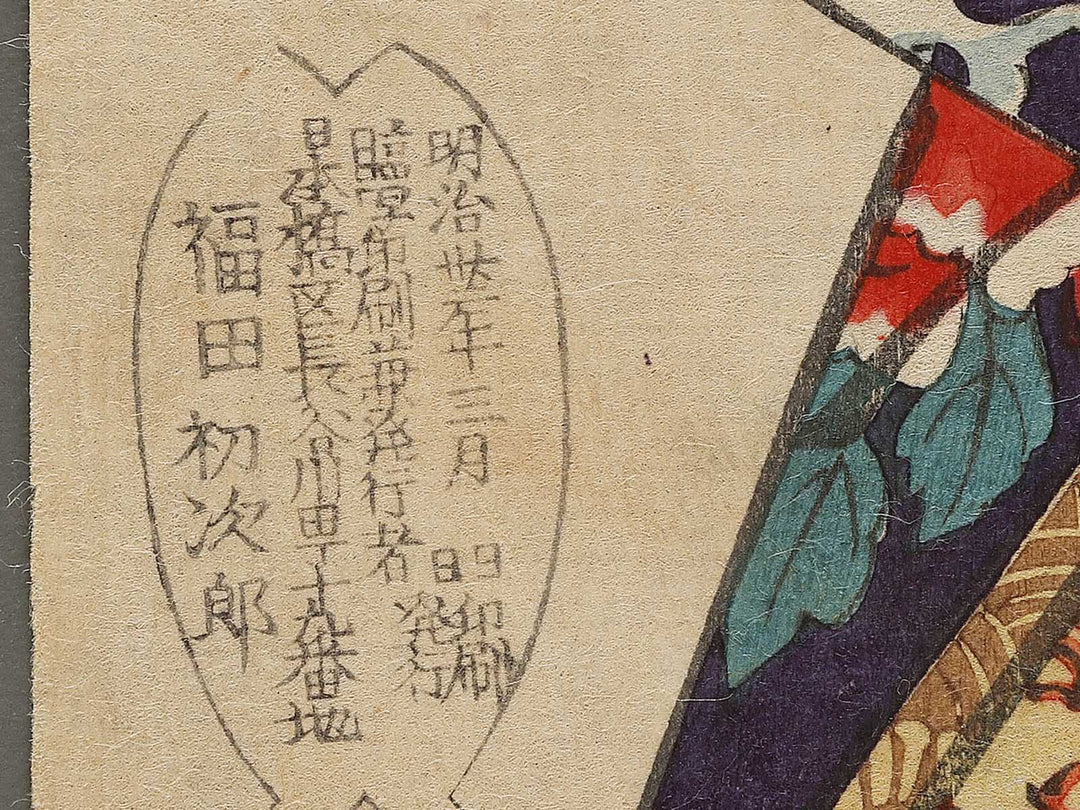 明治廿六年三月 日印刷
日発行
臨写印刷兼発行者
日本橋区長谷川町十九番地
福田初次郎